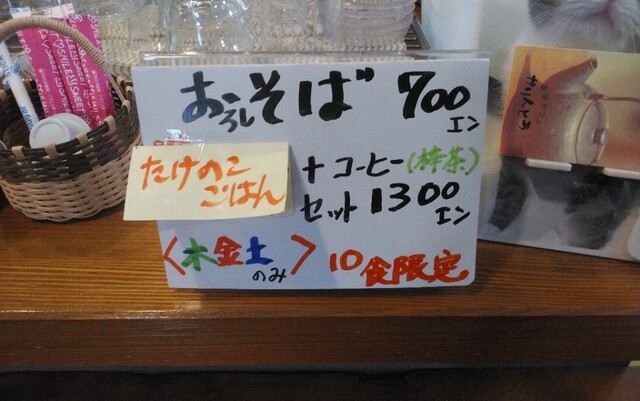 おろしそば 700エン
たけのこ
ごはん
+コーヒー(棒茶)
セット1300エン
<木金土>のみ 10食限定
かりんとう